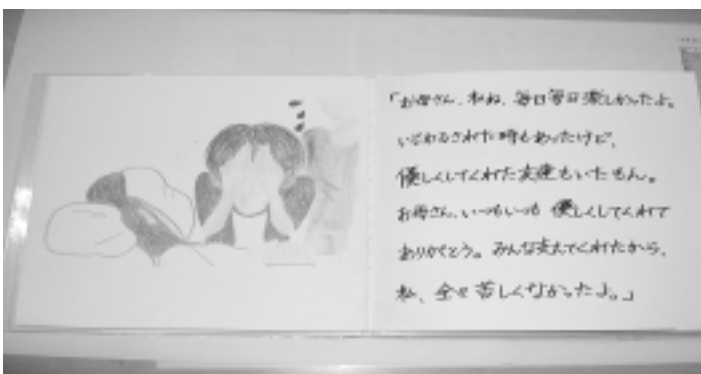 「お母さん、私ね、毎日毎日楽しかったよ。
いじわるされた時もあったけど、
優しくしてくれた友達もいたもん。
お母さん、いつもいつも 優しくしてくれて
ありがとう。みんな支えてくれたから、
私、全々苦しくなかったよ。」